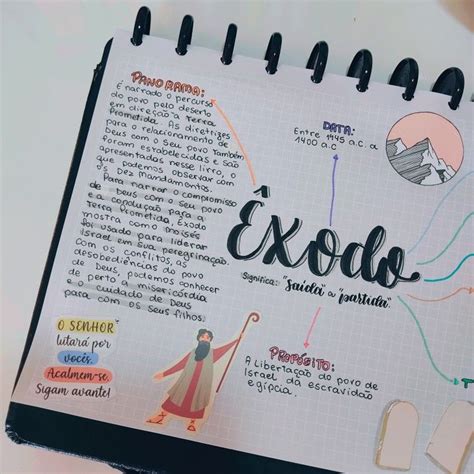 PANORAMA:
É narrado o percurso
do povo pelo deserto
em direção a Terra
Prometida. As diretrizes
para o relacionamento de
Deus com o seu povo também
foram estabelecidas e são
apresentadas nesse livro, o
que podemos observar com
os Dez Mandamentos.
Para narrar o compromisso
de Deus com o seu povo
e a condução para a
Terra Prometida, Êxodo
mostra como Moisés
foi usado para liderar
Israel em sua peregrinação.
Com os conflitos, as
desobediências do povo
de Deus, podemos conhecer
de perto a misericórdia
e o cuidado de Deus
para com os seus filhos.
DATA:
Entre 1445 a.C. a
1400 a.C
Êxodo
Significa: "saída" a "partida"
PROPÓSITO:
A Libertação do povo de
Israel da escravidão
egípcia.
O SENHOR
lutará por
vocês.
Acalmem-se.
Sigam avante!